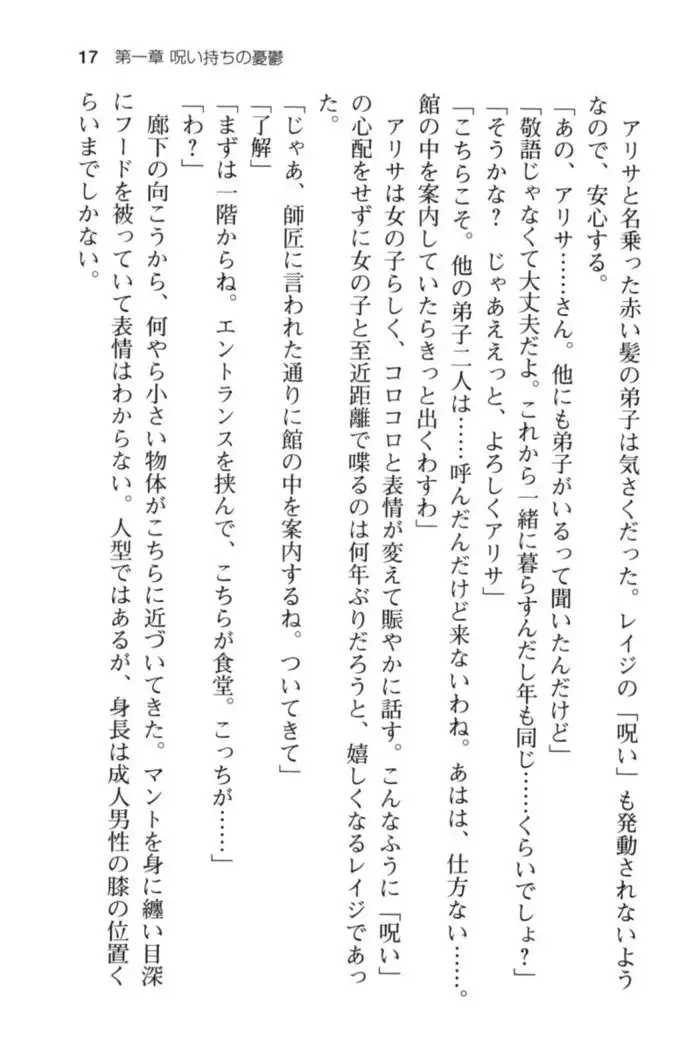 17 第一章 呪い持ちの憂鬱
アリサと名乗った赤い髪の弟子は気さくだった。レイジの「呪い」も発動されないよう
なので、安心する。
「あの、アリサ……さん。他にも弟子がいるって聞いたんだけど」
「敬語じゃなくて大丈夫だよ。これから一緒に暮らすんだし年も同じ……くらいでしょ？」
「そうかな？　じゃあええっと、よろしくアリサ」
「こちらこそ。他の弟子二人は……呼んだんだけど来ないわね。あはは、仕方ない……。
館の中を案内していたらきっと出くわすわ」
アリサは女の子らしく、コロコロと表情が変えて賑やかに話す。こんなふうに「呪い」
の心配をせずに女の子と至近距離で喋るのは何年ぶりだろうと、嬉しくなるレイジであっ
た。
「じゃあ、師匠に言われた通りに館の中を案内するね。ついてきて」
「了解」
「まずは一階からね。エントランスを挟んで、こちらが食堂。こっちが……」
「わ？」
廊下の向こうから、何やら小さい物体がこちらに近づいてきた。マントを身に纏い目深
にフードを被っていて表情はわからない。人型ではあるが、身長は成人男性の膝の位置く
らいまでしかない。